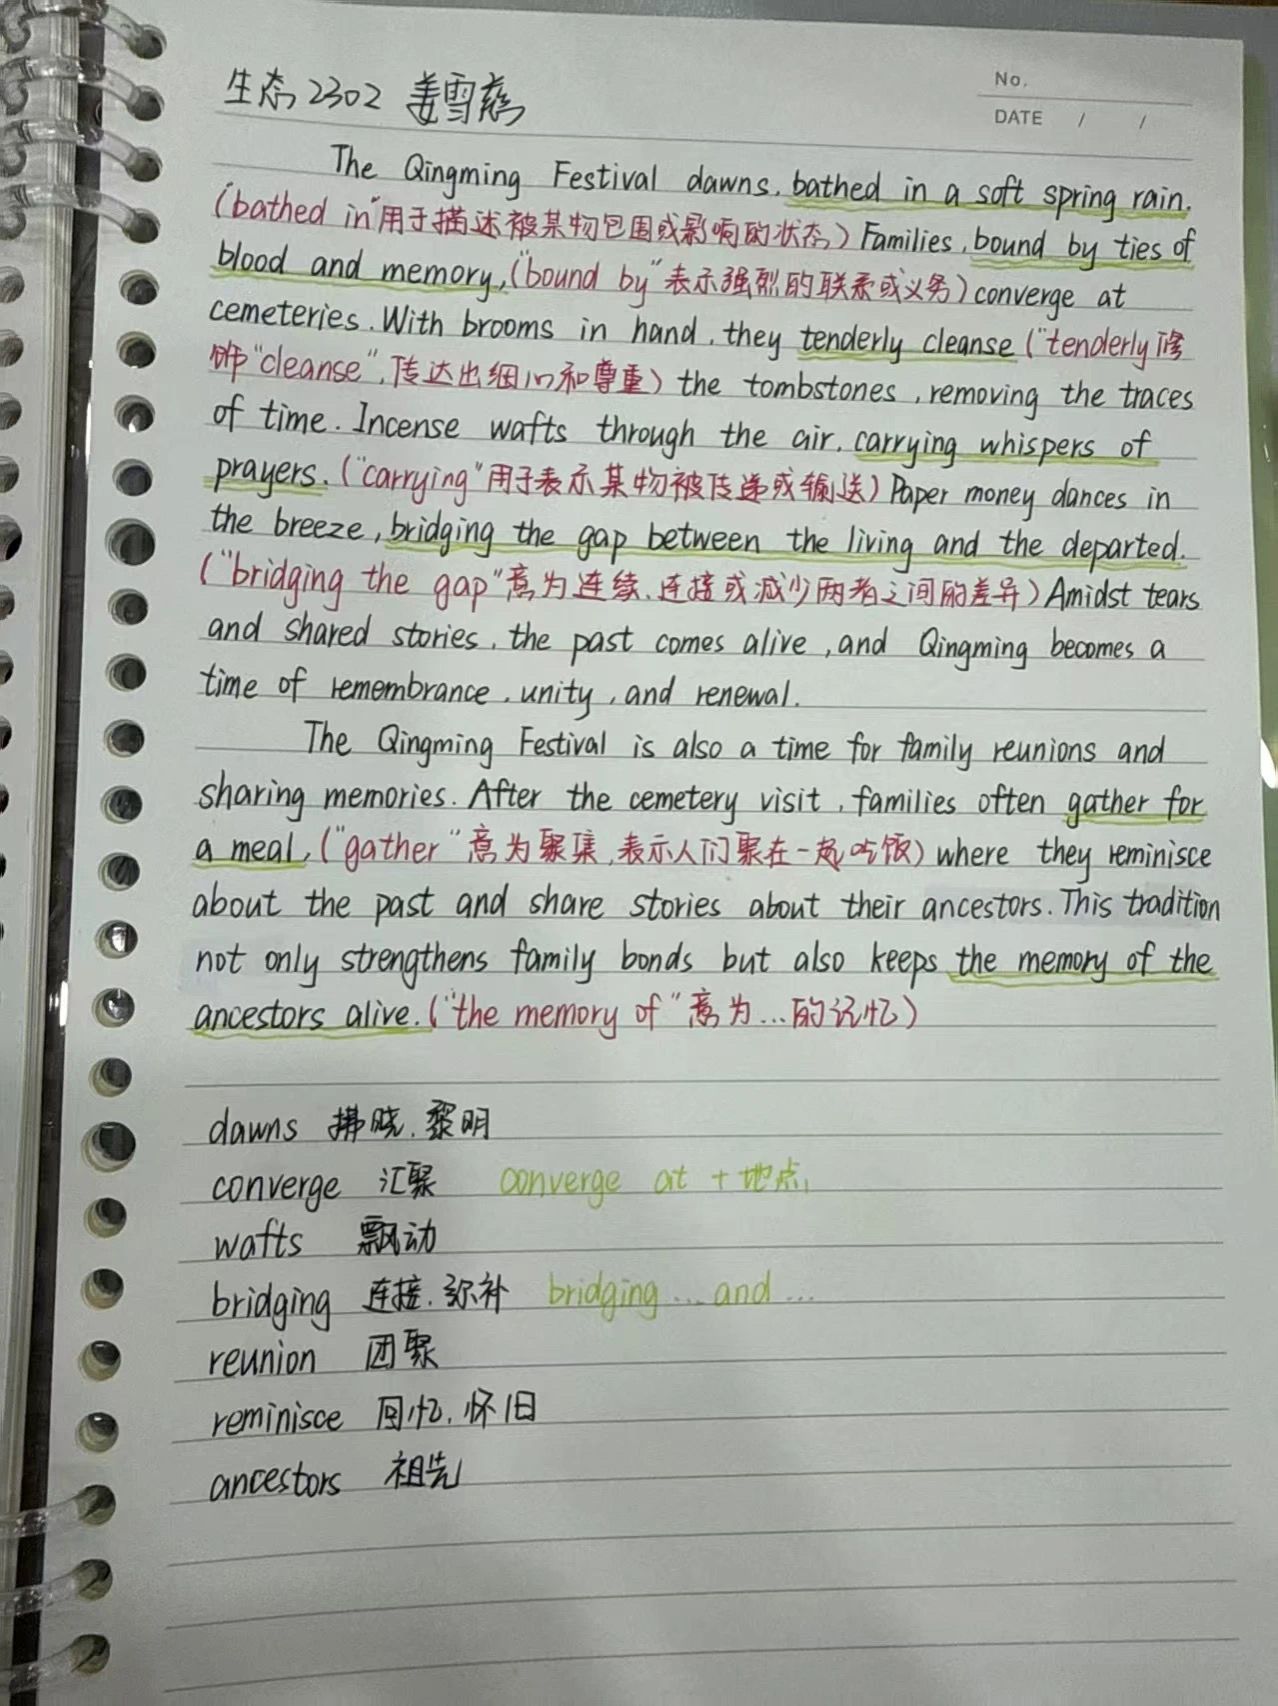 No.
DATE / /
生态2302 姜雪慈
The Qingming Festival dawns, bathed in a soft spring rain.
("bathed in"用于描述被某物包围或影响的状态) Families, bound by ties of
blood and memory, ("bound by"表示强烈的联系或义务) converge at
cemeteries. With brooms in hand, they tenderly cleanse ("tenderly修
饰"cleanse", 传达出细心和尊重) the tombstones, removing the traces
of time. Incense wafts through the air, carrying whispers of
prayers. ("carrying"用于表示某物被传递或输送) Paper money dances in
the breeze, bridging the gap between the living and the departed.
("bridging the gap"意为连续、连接或减少两者之间的差异) Amidst tears
and shared stories, the past comes alive, and Qingming becomes a
time of remembrance, unity, and renewal.
The Qingming Festival is also a time for family reunions and
sharing memories. After the cemetery visit, families often gather for
a meal, ("gather"意为聚集, 表示人们聚在一起吃饭) where they reminisce
about the past and share stories about their ancestors. This tradition
not only strengthens family bonds but also keeps the memory of the
ancestors alive. ("the memory of"意为…的记忆)
dawns 拂晓, 黎明
converge 汇聚 converge at + 地点
wafts 飘动
bridging 连接, 弥补 bridging … and …
reunion 团聚
reminisce 回忆, 怀旧
ancestors 祖先